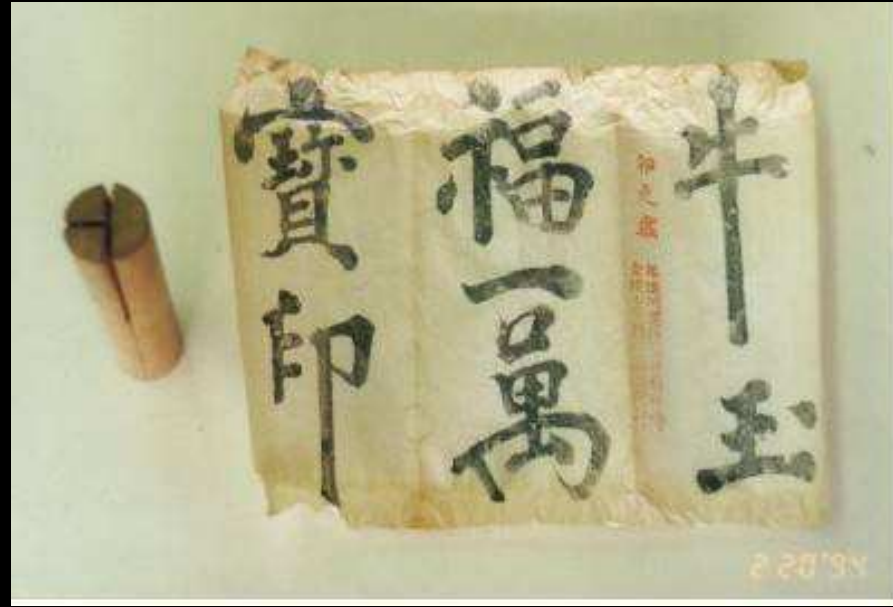 牛玉
福一萬
寶印
2 20'94